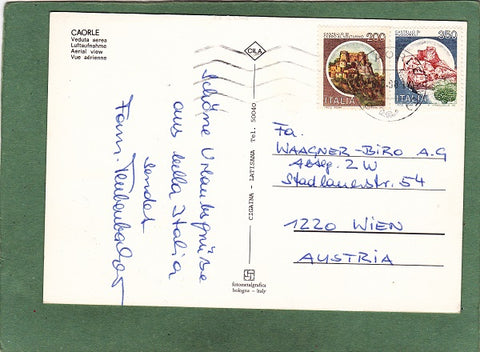 CAORLE
Veduta aerea
Luftaufnahme
Aerial view
Vue aérienne
CILA
200
ITALIA
350
ITALIA
CIGAINA - LATISANA Tel. 50040
Schöne Urlaubsgrüße
aus bella Italia
sendet
Fam.
Fa.
WAAGNER-BIRO A.G
Abtlg. 2 W
Stadlauerstr. 54
1220 WIEN
AUSTRIA
fotometalgrafica
bologna - italy